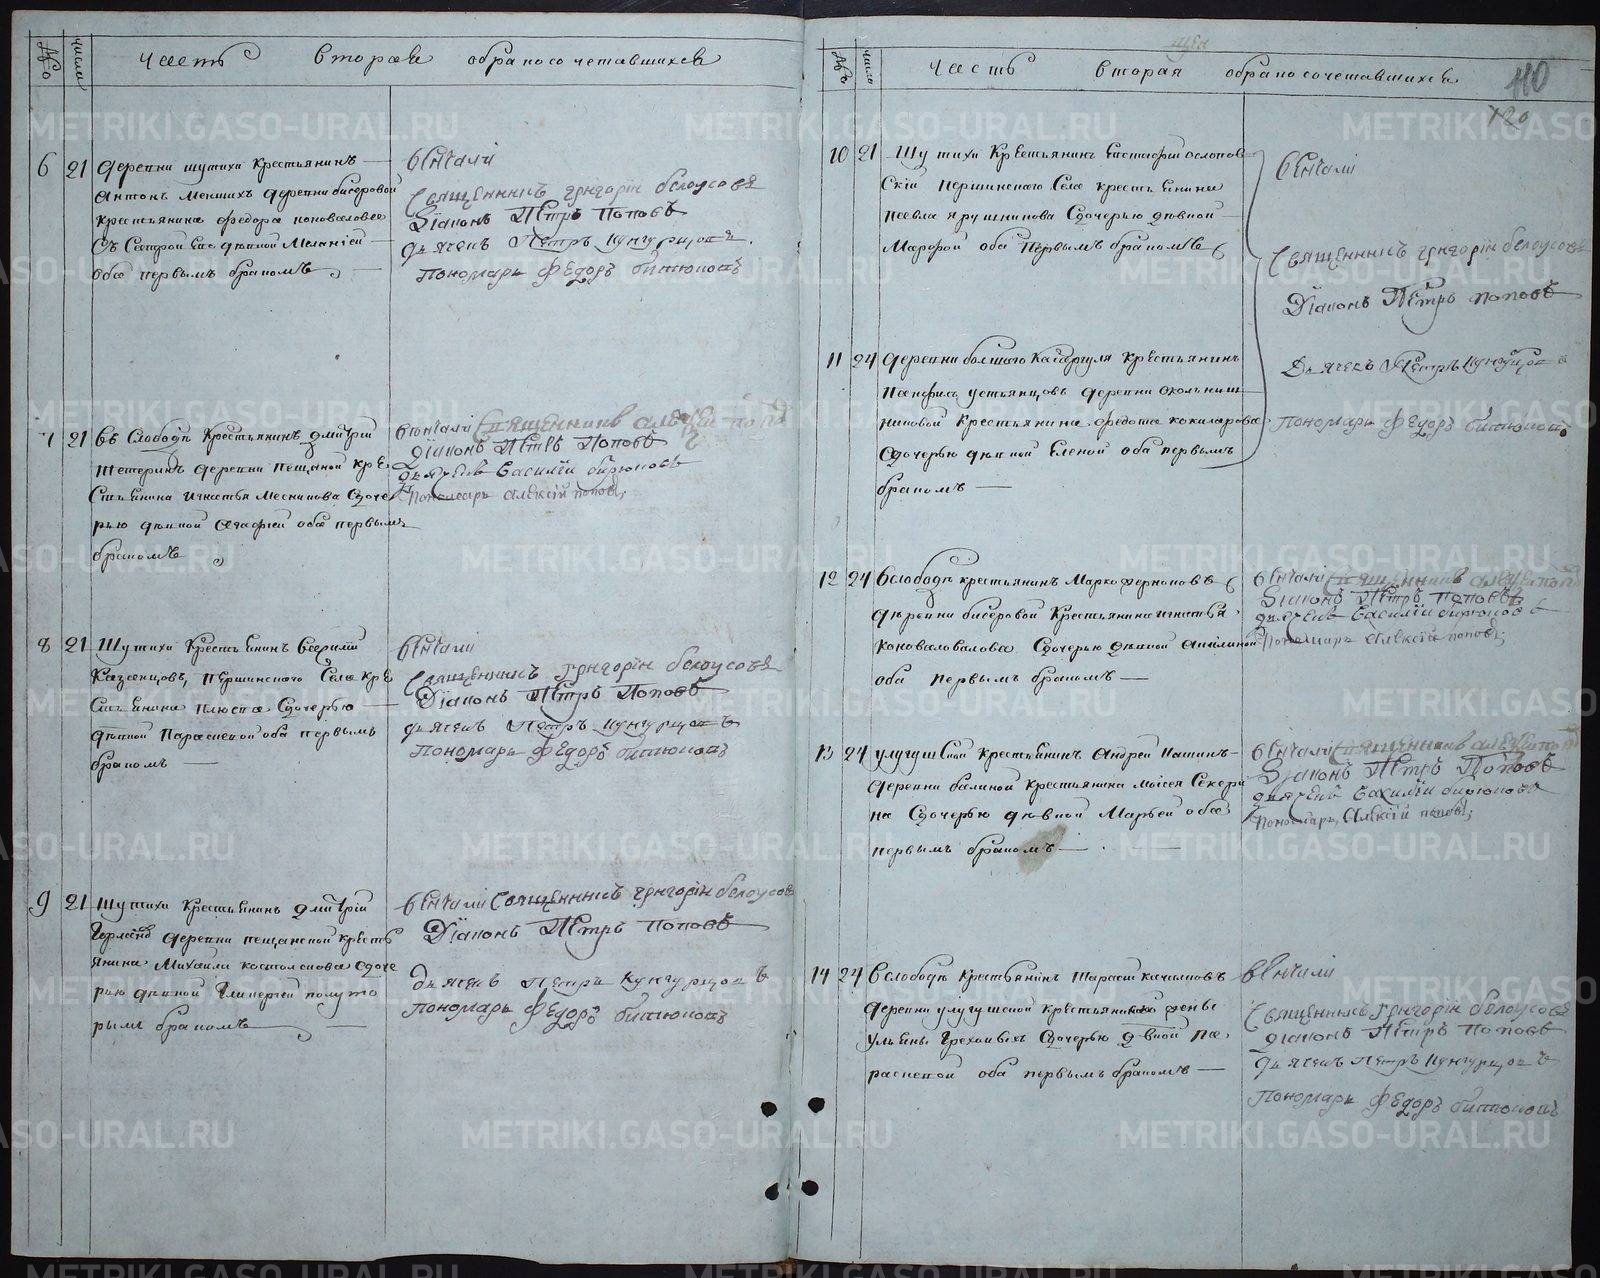 №
число
Часть вторая о бракосочетавшихся
6 21 деревни шутихи крестьянинъ
Антонъ Меншихъ деревни бисеровой
крестьянина Федора коновалова
съ сестрой его девкой Меланіей
оба первымъ бракомъ
венчали
священникъ григорій белоусовъ
Діаконъ Петръ Поповъ
дьячекъ Петръ Кунгурцовъ
пономарь Федоръ битюковъ
7 21 въ Слободе Крестьянинъ дмитрій
Тетеринъ деревни пещаной кре
стьянина игнатья доче
рью девкой агафіей оба первымъ
бракомъ
венчали священникъ алексей попов
діаконъ Петръ Поповъ
дьячекъ Василій бирюковъ
Пономарь Алексій поповъ
8 21 Шутихи Крестьянинъ
Казанцовъ, першинского Села кре
стьянина дочерью
девкой Параскевой оба первымъ
бракомъ
венчали
священникъ григорій белоусовъ
Діаконъ Петръ Поповъ
дьячекъ Петръ Кунгурцовъ
Пономарь Федоръ битюковъ
9 21 Шутихи Крестьянинъ дмитрій
деревни пещанской кресть
янина Михаила костоломова доче
рью девкой Гликерией полуто
рымъ бракомъ
венчали священникъ григорій белоусовъ
Діаконъ Петръ Поповъ
дьячекъ Петръ Кунгурцовъ
пономарь Федоръ битюковъ
№
число
Часть вторая о бракосочетавшихся
110
120
10 21 Шутихи Крестьянинъ
скій Першинского Села крестьянина
павла ярушникова Сдочерью девкой
Марфой оба Первымъ бракомъ
венчали
священникъ григорій белоусовъ
Діаконъ Петръ поповъ
Дьячекъ Петръ Кунгурцовъ
пономарь Федоръ битюковъ
11 24 деревни болшаго Кабаргуля крестьянинъ
устьянцовъ деревни
крестьянина федота кокшарова
Сдочерью девкой Еленой оба первымъ
бракомъ
12 24 вслободе крестьянинъ Марко
деревни бисеровой Крестьянина игнатья
Сдочерью девкой Акилиной
оба первымъ бракомъ
венчали священникъ алексей попов
Діаконъ Петръ поповъ
дьячекъ Василій бирюковъ
Пономарь Алексій поповъ
13 24 крестьянинъ Андрей Пашинъ
деревни балиной крестьянина Моисея Секери
на Сдочерью девкой Марьей оба
первымъ бракомъ
венчали священникъ алексей попов
Діаконъ Петръ Поповъ
дьячекъ Василій бирюковъ
Пономарь Алексій поповъ
14 24 вслободе Крестьянинъ Тарасъ качаловъ
деревни крестьянской женъ
Ульяны Греховыхъ Сдочерью девкой Па
раскевой оба первымъ бракомъ
венчали
священникъ григорій белоусовъ
діаконъ Петръ поповъ
дьячекъ Петръ Кунгурцовъ
Пономарь Федоръ битюковъ
METRIKI.GASO-URAL.RU